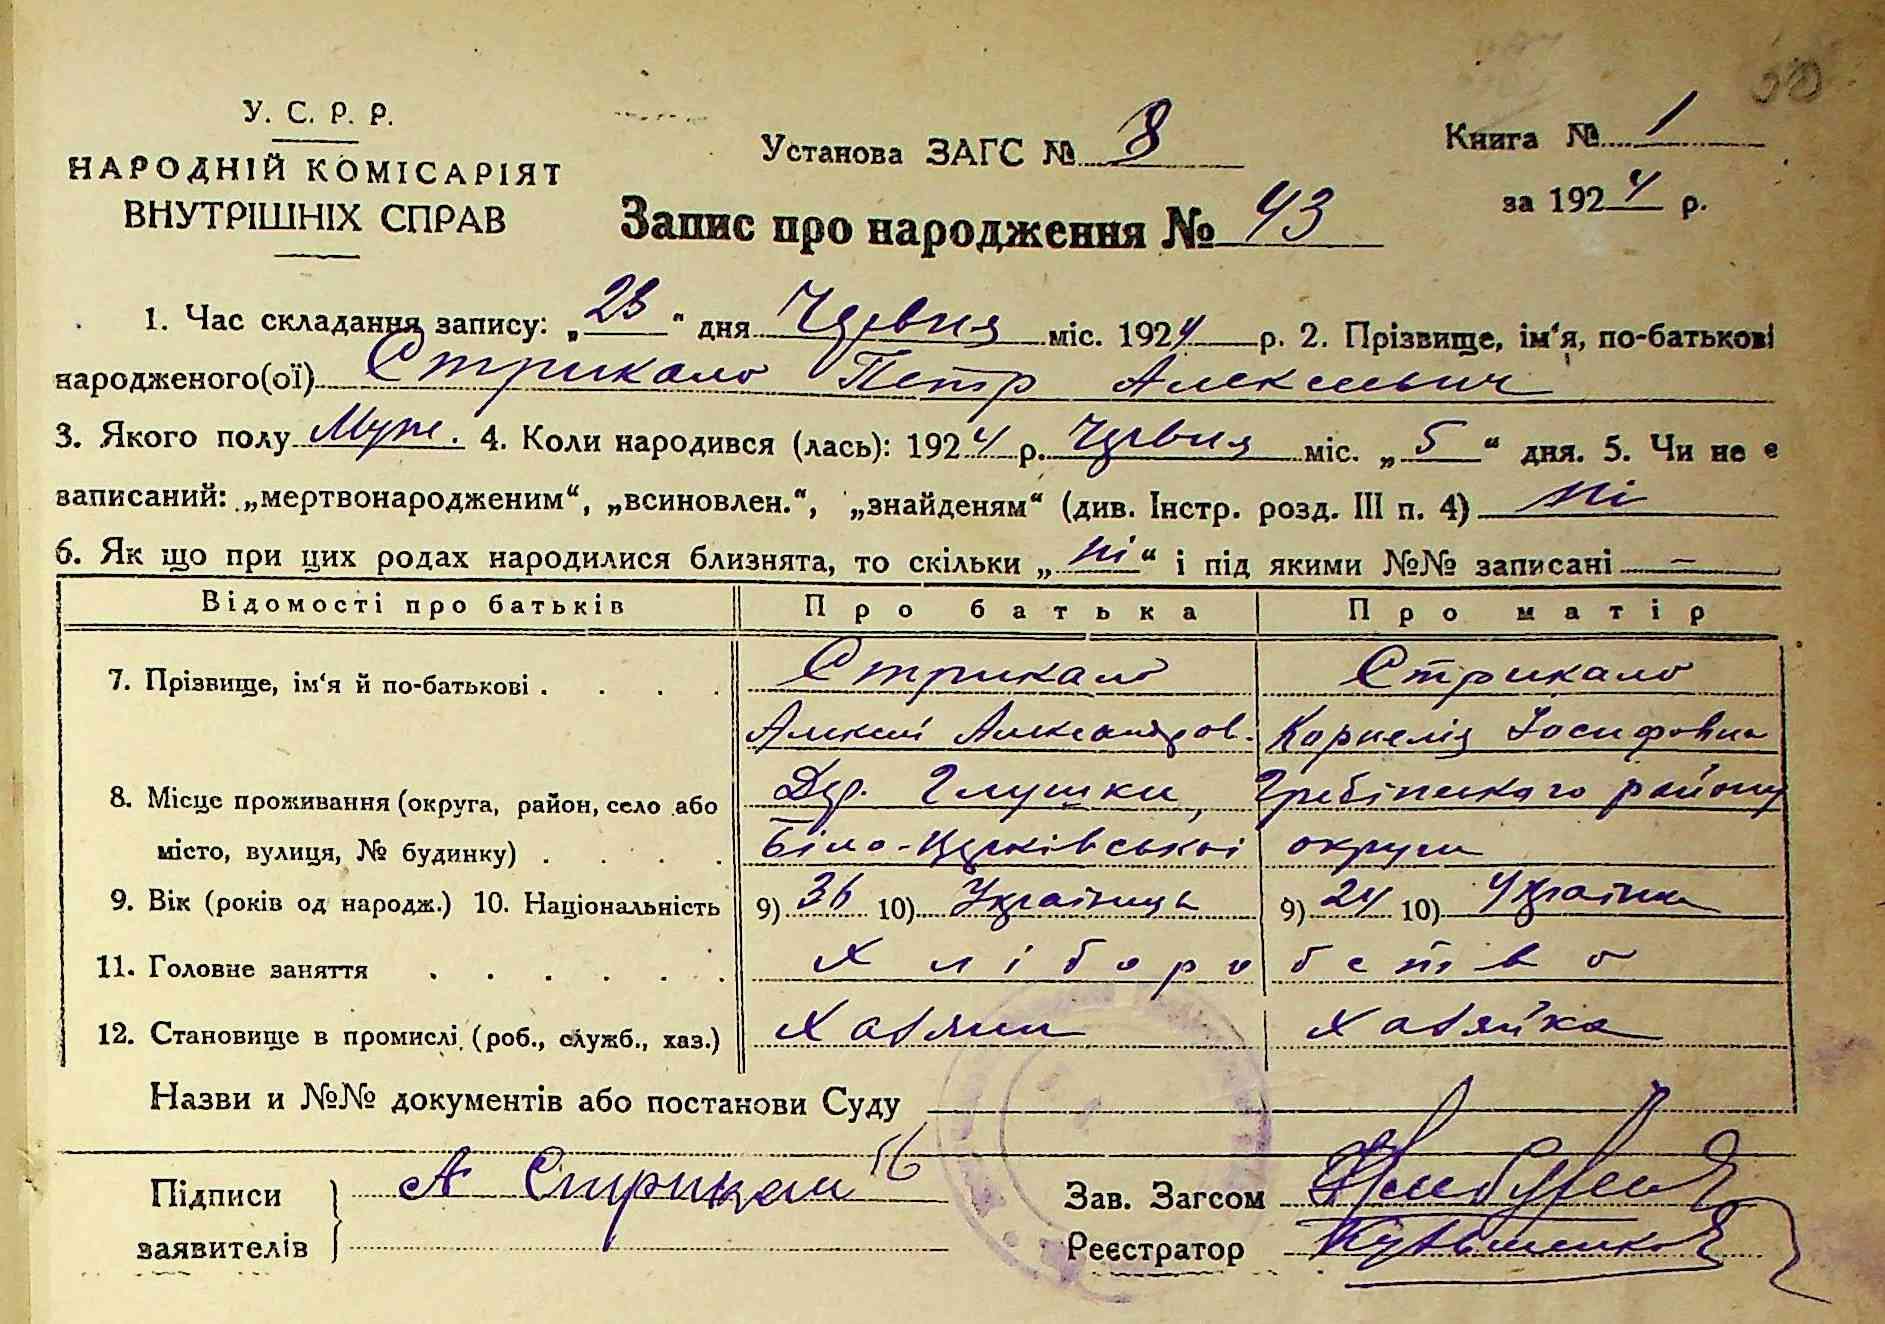 У. С. Р. Р.
НАРОДНІЙ КОМІСАРІЯТ
ВНУТРІШНІХ СПРАВ
Установа ЗАГС № 8
Книга № 1
за 1924 р.
Запис про народження № 43
1. Час складання запису: „23“ дня Червня міс. 1924 р. 2. Прізвище, ім‘я, по-батькові
народженого(ої) Стрикало Петр Алексеевич
3. Якого полу Муж. 4. Коли народився (лась): 1924 р. Червня міс. „5“ дня. 5. Чи не є
записаний: „мертвонародженим“, „всиновлен.“, „знайденям“ (див. Інстр. розд. III п. 4) ні
6. Як що при цих родах народилися близнята, то скільки „ні“ і під якими №№ записані —
Відомості про батьків Про батька Про матір
7. Прізвище, ім‘я й по-батькові . . . . Стрикало Стрикало
Алексей Александров. Корнелія Іосифовна
8. Місце проживання (округа, район, село або Дер. Глушки, Гребінського району
місто, вулиця, № будинку) . . . . Біло-Церківської округи
9. Вік (років од народж.) 10. Національність 9) 36 10) Українець 9) 24 10) Українка
11. Головне заняття . . . . . . Хліборобство
12. Становище в промислі (роб., служб., хаз.) Хазяин Хазяйка
Назви и №№ документів або постанови Суду
Підписи
заявителів
А Стрикало
Зав. Загсом
Реєстратор